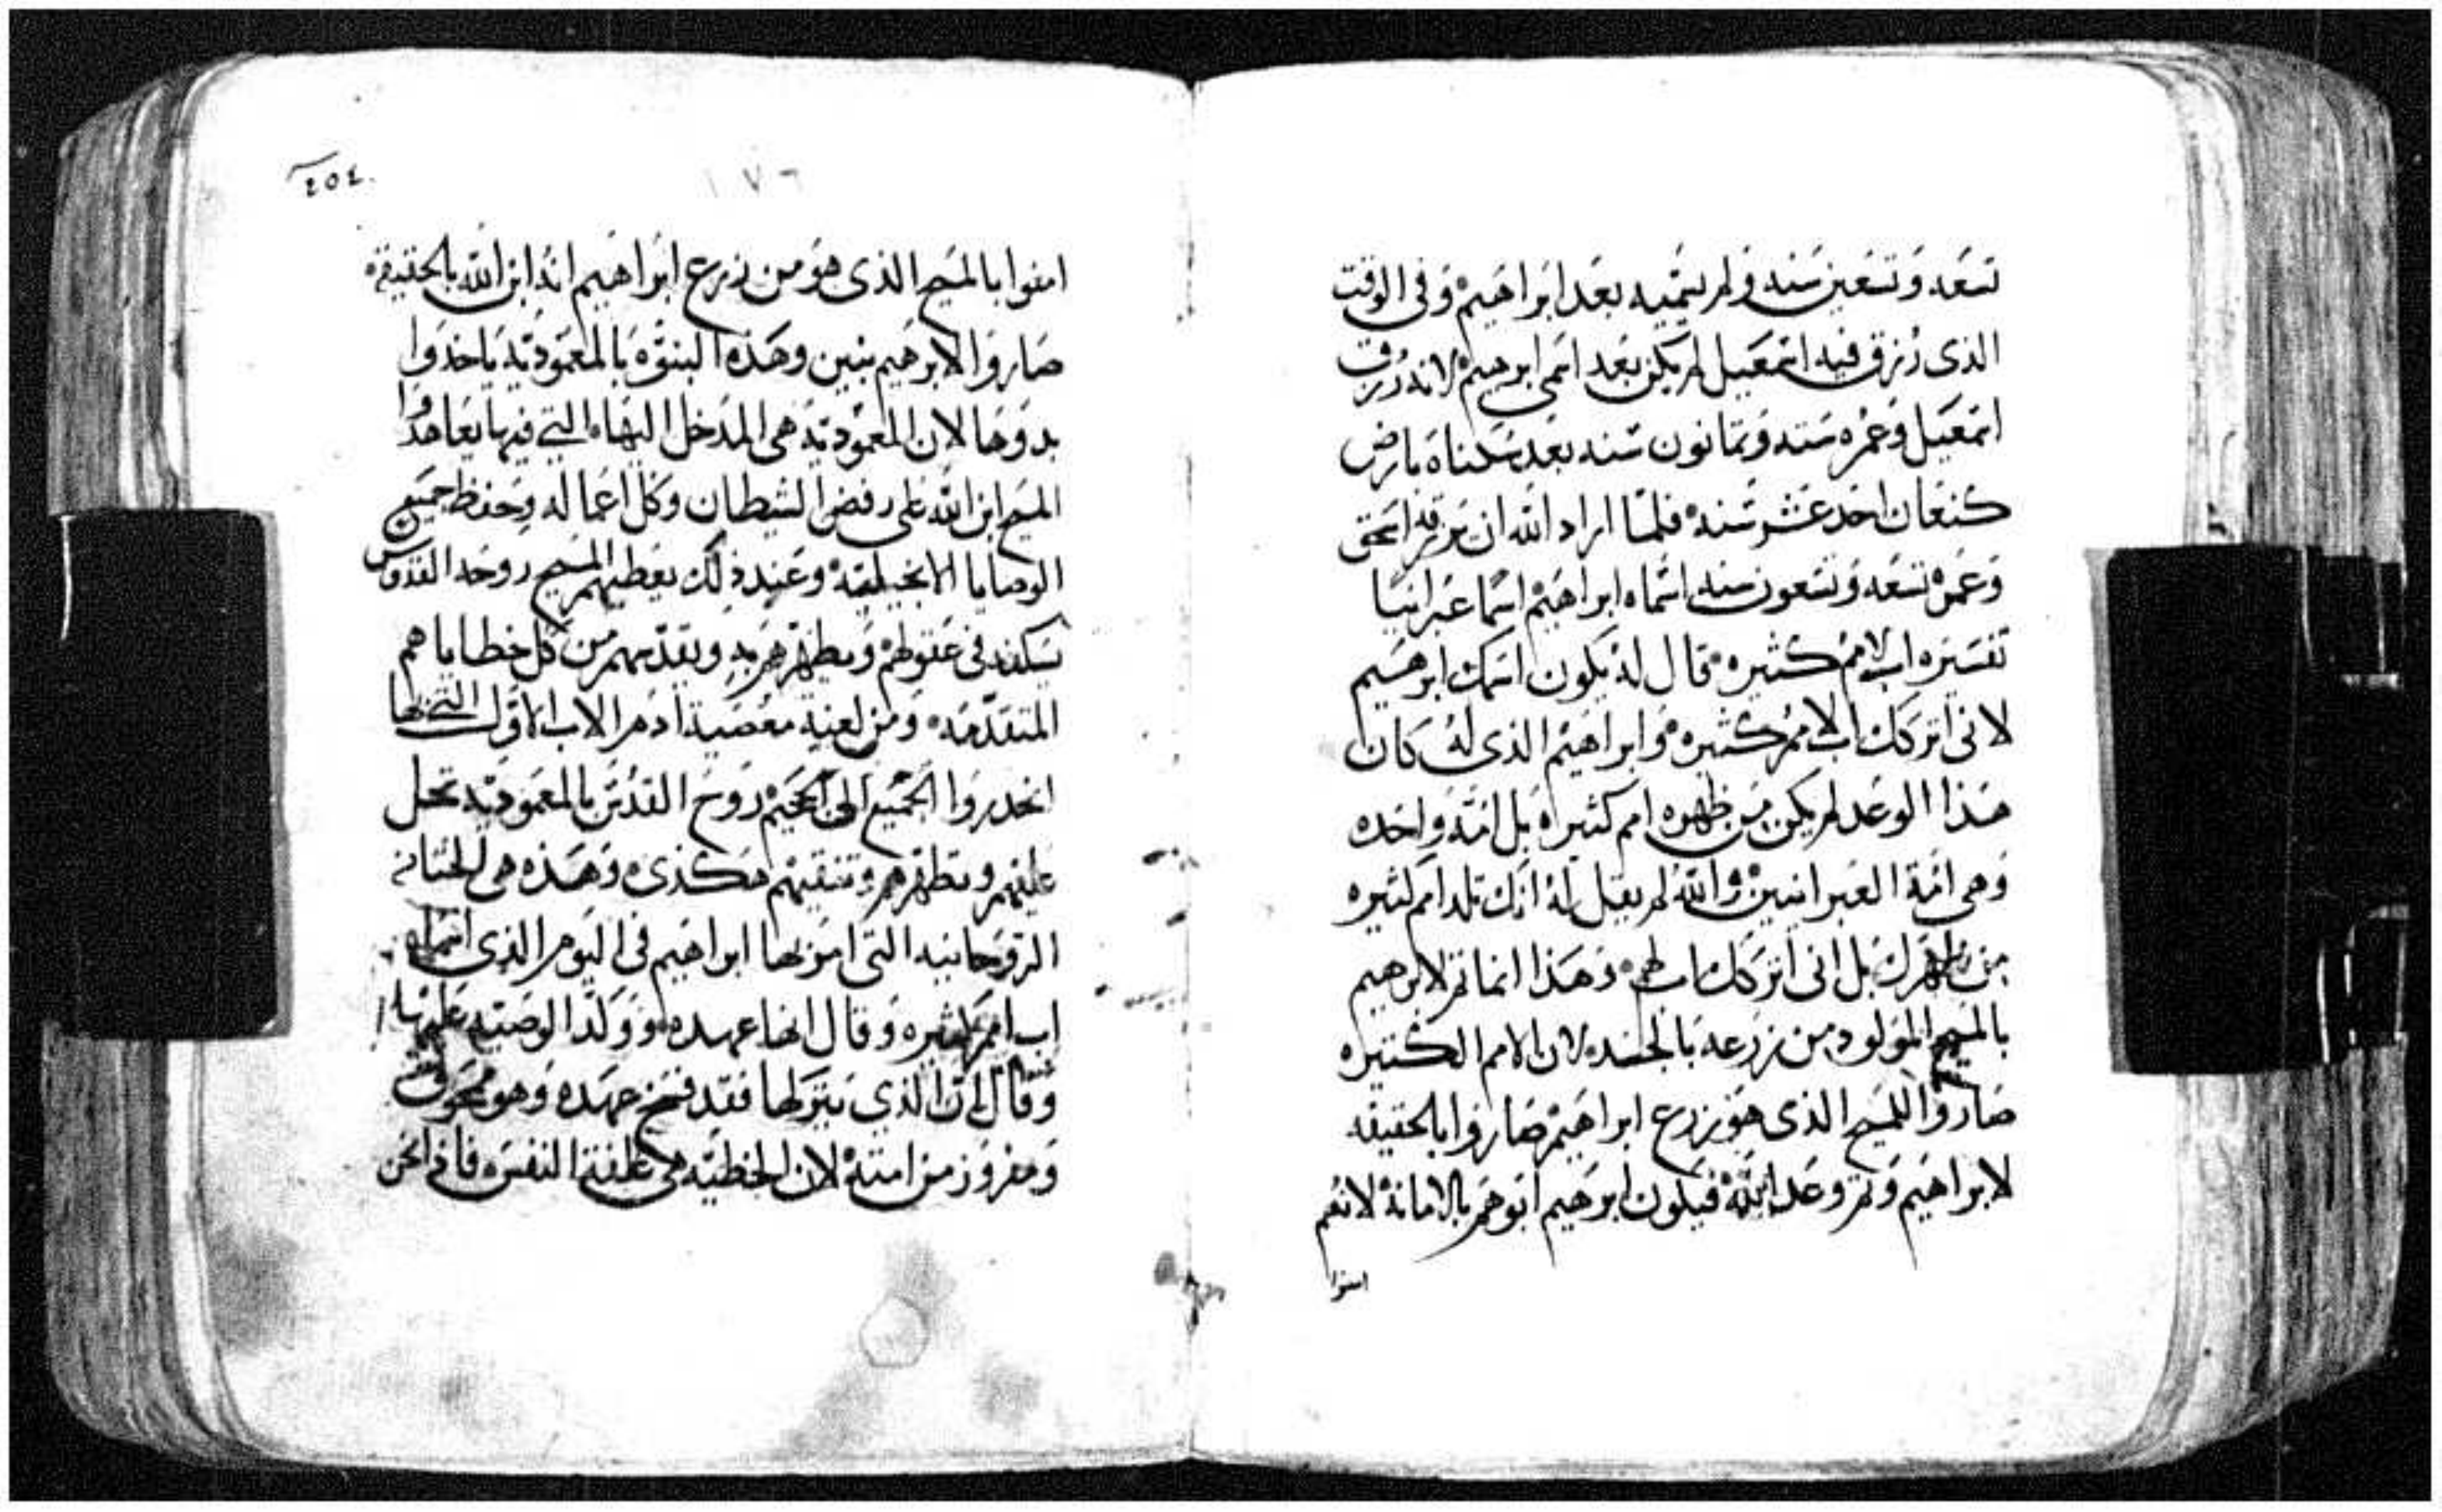 تسعه وتسعين سنه ولم يسميه بعد ابراهيم وفى الوقت
الذى رزق فيه اسمعيل لم يكن بعد اسمى ابرهيم لانه رزق
اسمعيل وعمره سته وثمانون سنه بعد سكناه بارض
كنعان احد عشر سنه فلما اراد الله ان يرزقه اسحق
وعمره تسعه وتسعون سنه اسماه ابراهيم اسمًا عبرانيا
تفسيره اب لامم كثيره قال له يكون اسمك ابرهيم
لانى اتركك اب لامم كثيره وابراهيم الذى له كان
هذا الوعد لم يكن من ظهره امم كثيراه بل امه واحده
وهى امة العبرانيين والله لم يقل له انك تلد امم كثيره
من ظهرك بل انى اتركك اب لهم وهذا انما تم لابرهيم
بالمسيح المولود من زرعه بالجسد لان الامم الكثيره
صاروا للمسيح الذى هو زرع ابراهيم صاروا بالحقيقه
لابراهيم وتم وعد الله فيكون ابرهيم ابوهم بالامانة لانهم
امنوا
٢٥٤
١٧٦
امنوا بالمسيح الذى هو من زرع ابراهيم انه ابن الله بالحقيقه
صاروا لابرهيم بنين وهذه البنوه بالمعموديه ياخدوا
بدوها لان المعموديه هى المدخل اليها التي فيها يعاهدوا
المسيح ابن الله على رفض الشيطان وكل اعماله وحفظ جميع
الوصايا الانجيليه وعند ذلك يعطيهم المسيح روحه القدوس
يسكنه فى عقولهم ويطهرهم به ويقدسهم من كل خطاياهم
المتقدمه ومن لعنة معصية ادم الاب الاول التي بها
انحدروا الجميع الى الجحيم روح القدس بالمعموديه تحل
عليهم وتطهرهم وتنقيهم هكذى وهذه هى الختانه
الروحانيه التى امر بها ابراهيم فى اليوم الذى اسماه
اب امم كثيره وقال انها عهده ووكد الوصيه عليها
وقال ان الذى يتركها فقد فسخ عهده وهو ممحوق
ومفروز من امته لان الخطيه هى غلفة النفس فاذا نحن